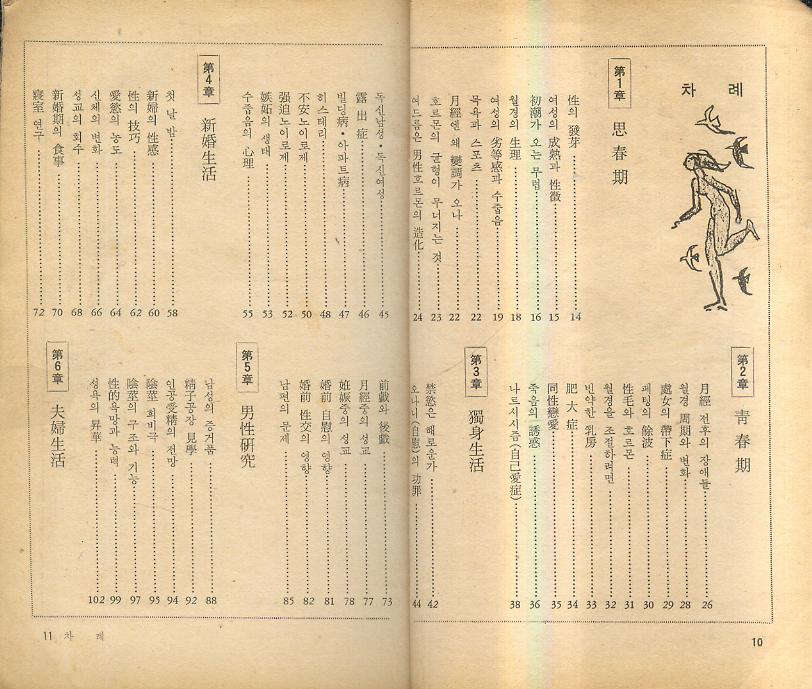 차 례
第1章 思春期
性의 發芽 14
여성의 成熟과 性徵 15
初潮가 오는 무렵 16
월경의 生理 18
여성의 劣等感과 수줍음 19
목욕과 스포츠 22
月經엔 왜 變調가 오나 22
호르몬의 균형이 무너지는 것 23
여드름은 男性호르몬의 造化 24
第2章 靑春期
月經 전후의 장애들 26
월경 周期와 변화 28
處女의 帶下症 29
페팅의 餘波 30
性毛와 호르몬 31
월경을 조절하려면 32
빈약한 乳房 33
肥大症 34
同性戀愛 35
죽음의 誘惑 36
나르시시즘(自己愛症) 38
第3章 獨身生活
禁慾은 해로운가 42
오나니(自慰)의 功罪 44
10
독신남성·독신여성 45
露出症 46
빌딩病·아파트病 47
히스테리 48
不安노이로제 50
强迫노이로제 52
嫉妬의 생태 53
수줍음의 心理 55
第4章 新婚生活
첫날밤 58
新婦의 性感 60
性의 技巧 62
愛慾의 농도 64
신체의 변화 66
성교의 회수 68
新婚期의 食事 70
寢室 연구 72
前戱와 後戱 73
月經중의 성교 77
妊娠중의 성교 78
婚前 自慰의 영향 81
婚前 性交의 영향 82
남편의 문제 85
第5章 男性硏究
남성의 증거품 88
精子공장 見學 92
인공受精의 전망 94
陰莖 희비극 95
陰莖의 구조와 기능 97
性的욕망과 능력 99
성욕의 昇華 102
第6章 夫婦生活
11 차 례